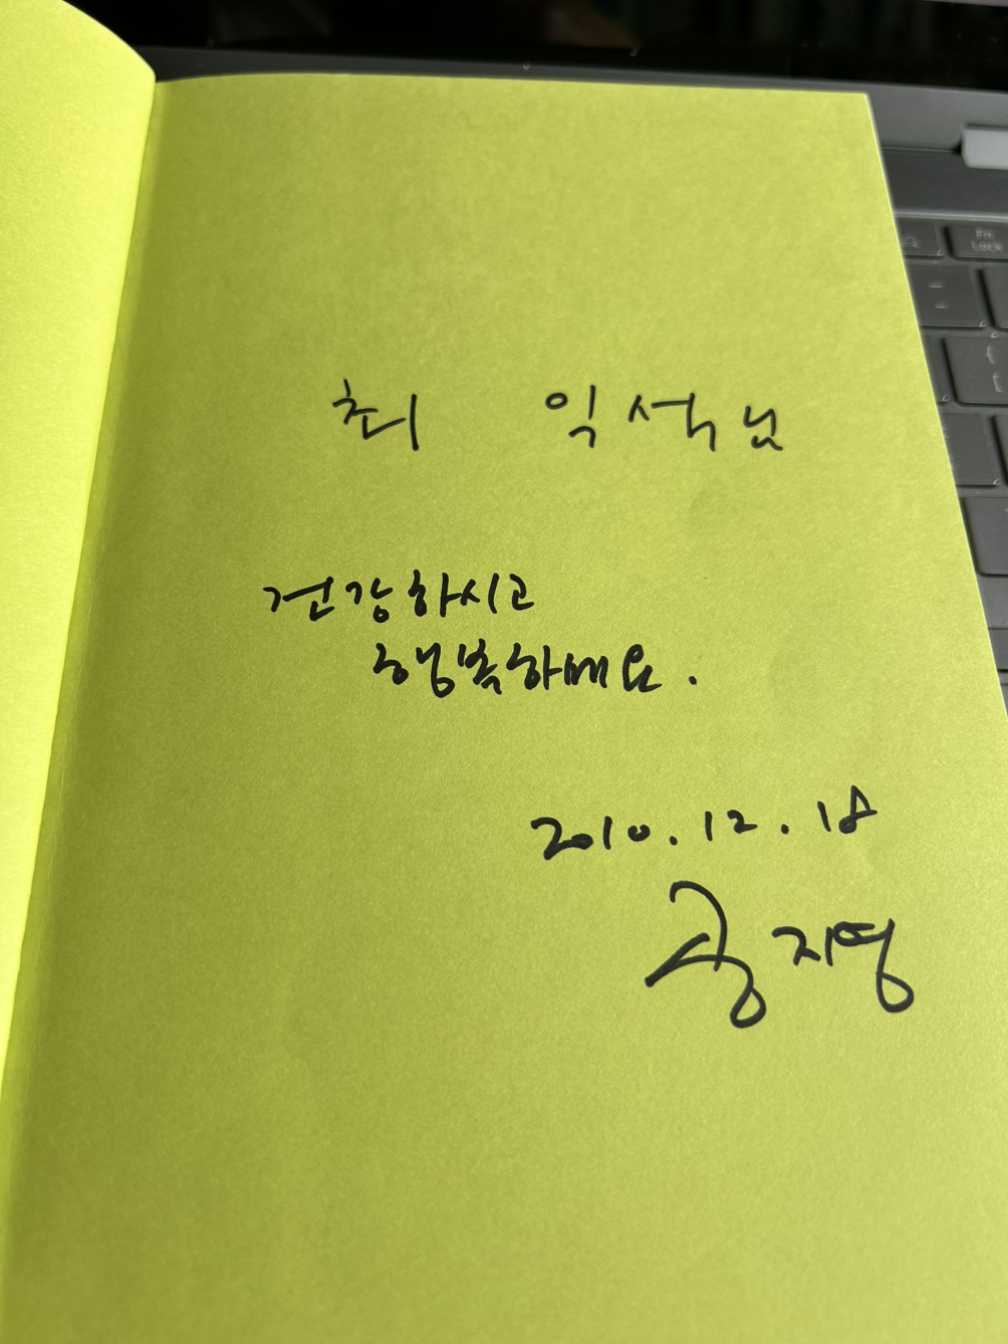 최 익석님
건강하시고
행복하세요.
2010.12.18
공지영
Fn
Lock